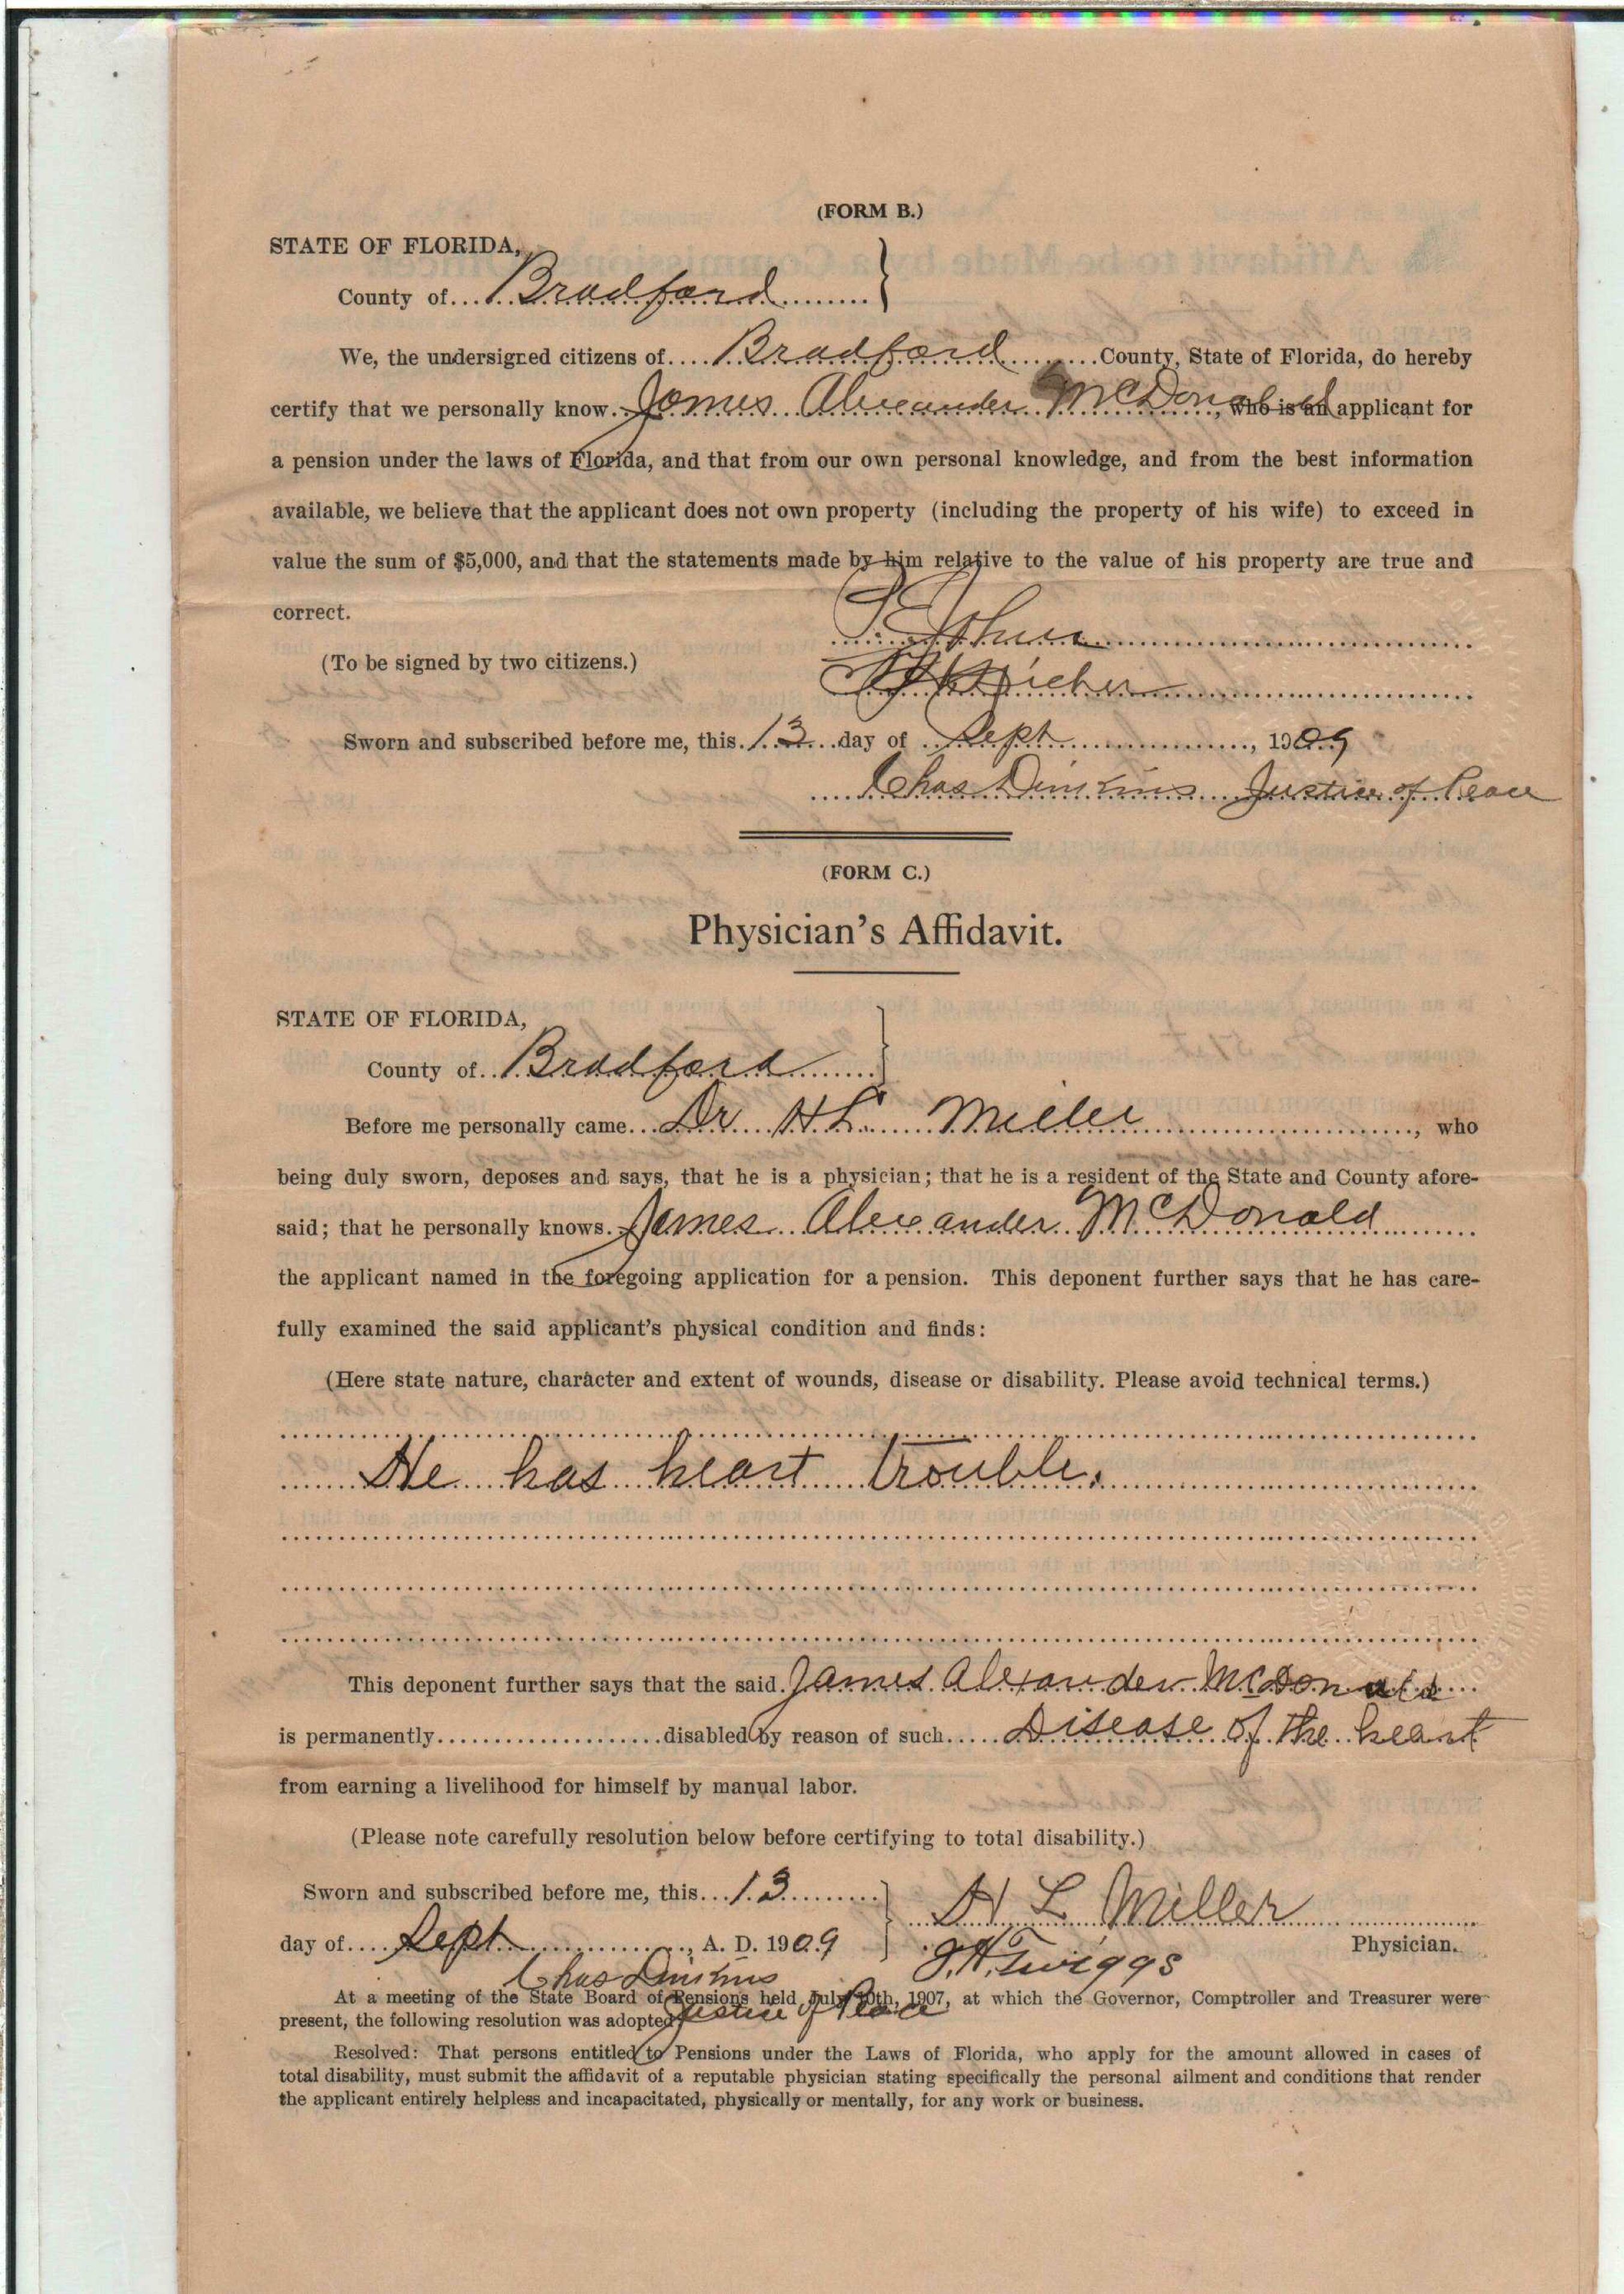 (FORM B.)
STATE OF FLORIDA,
County of Bradford
We, the undersigned citizens of Bradford County, State of Florida, do hereby
certify that we personally know James Alexander McDonald, who is an applicant for
a pension under the laws of Florida, and that from our own personal knowledge, and from the best information
available, we believe that the applicant does not own property (including the property of his wife) to exceed in
value the sum of $5,000, and that the statements made by him relative to the value of his property are true and
correct.
(To be signed by two citizens.)
Sworn and subscribed before me, this 13 day of Sept, 1909
Chas Dinkins Justice of Peace
(FORM C.)
Physician's Affidavit.
STATE OF FLORIDA,
County of Bradford
Before me personally came Dr H L Miller, who
being duly sworn, deposes and says, that he is a physician; that he is a resident of the State and County afore-
said; that he personally knows James Alexander McDonald
the applicant named in the foregoing application for a pension. This deponent further says that he has care-
fully examined the said applicant's physical condition and finds:
(Here state nature, character and extent of wounds, disease or disability. Please avoid technical terms.)
He has heart trouble.
This deponent further says that the said James Alexander McDonald
is permanently disabled by reason of such Disease of the heart
from earning a livelihood for himself by manual labor.
(Please note carefully resolution below before certifying to total disability.)
Sworn and subscribed before me, this 13
H L Miller
day of Sept, A. D. 1909
Physician.
J. H. Twiggs
Chas Dinkins
At a meeting of the State Board of Pensions held July 10th, 1907, at which the Governor, Comptroller and Treasurer were
present, the following resolution was adopted: Justice of Peace
Resolved: That persons entitled to Pensions under the Laws of Florida, who apply for the amount allowed in cases of
total disability, must submit the affidavit of a reputable physician stating specifically the personal ailment and conditions that render
the applicant entirely helpless and incapacitated, physically or mentally, for any work or business.